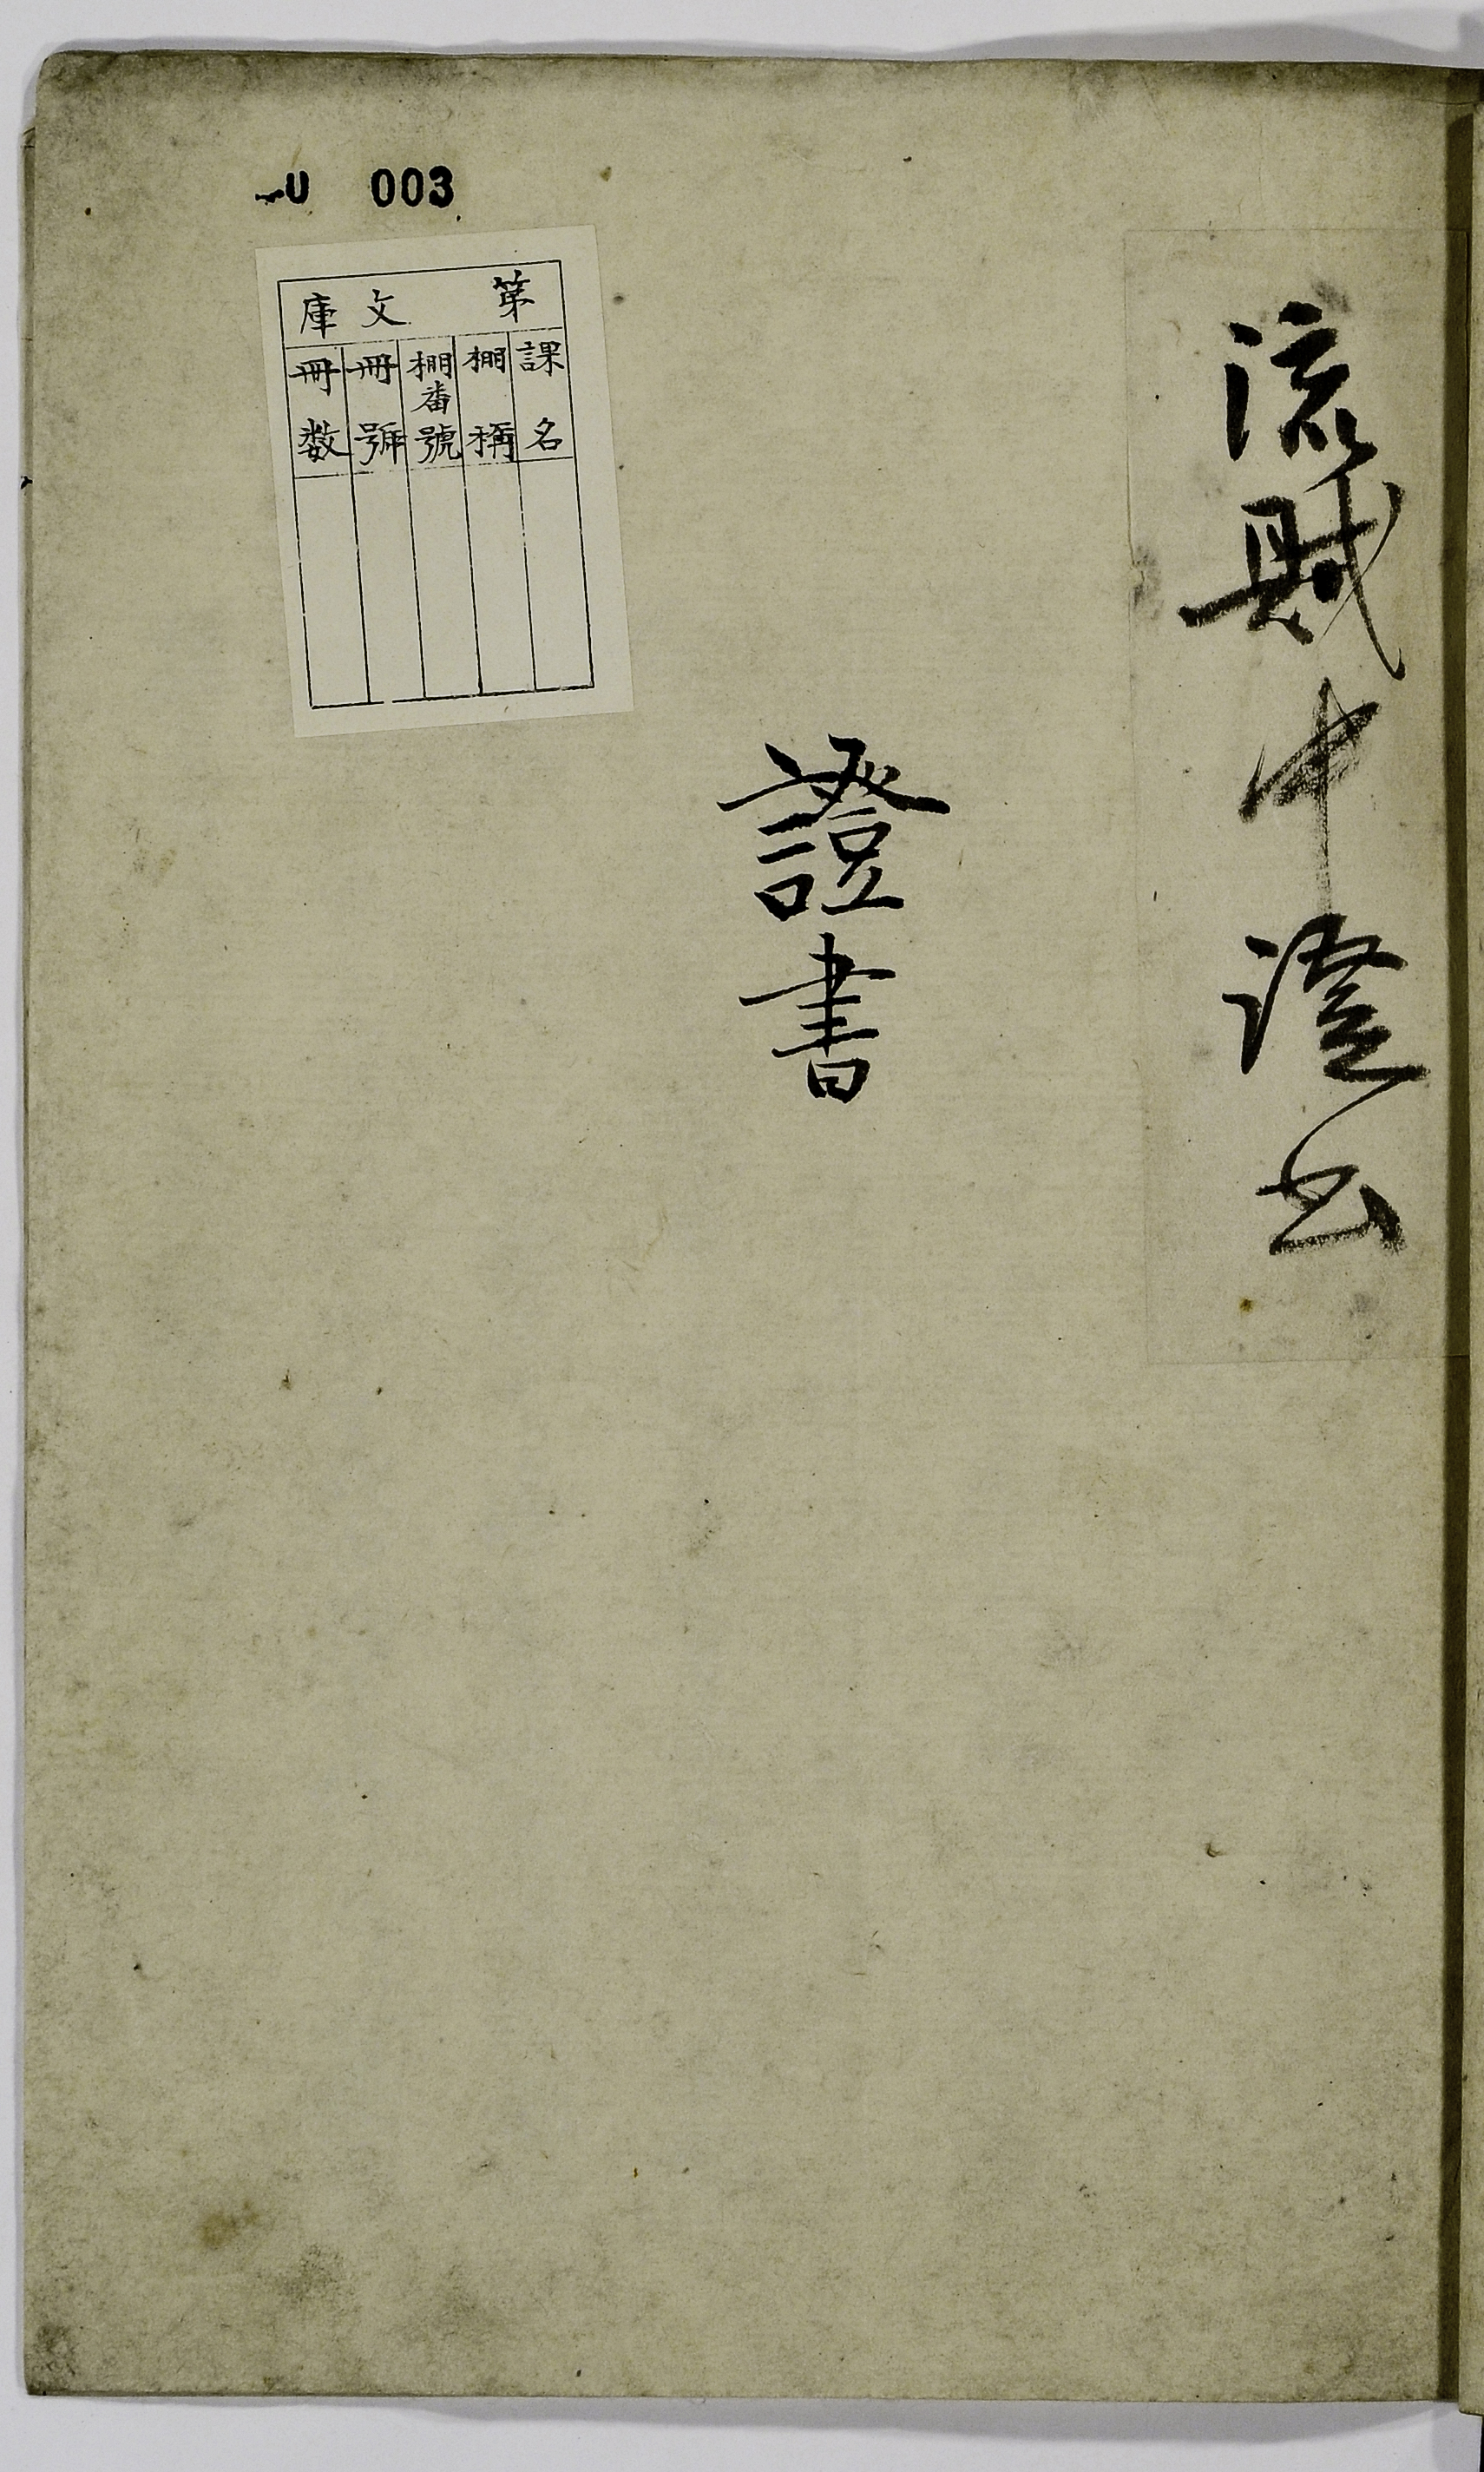 流賊中證書
證書
003
第 文庫
課名
棚稱
棚番號
冊號
冊数